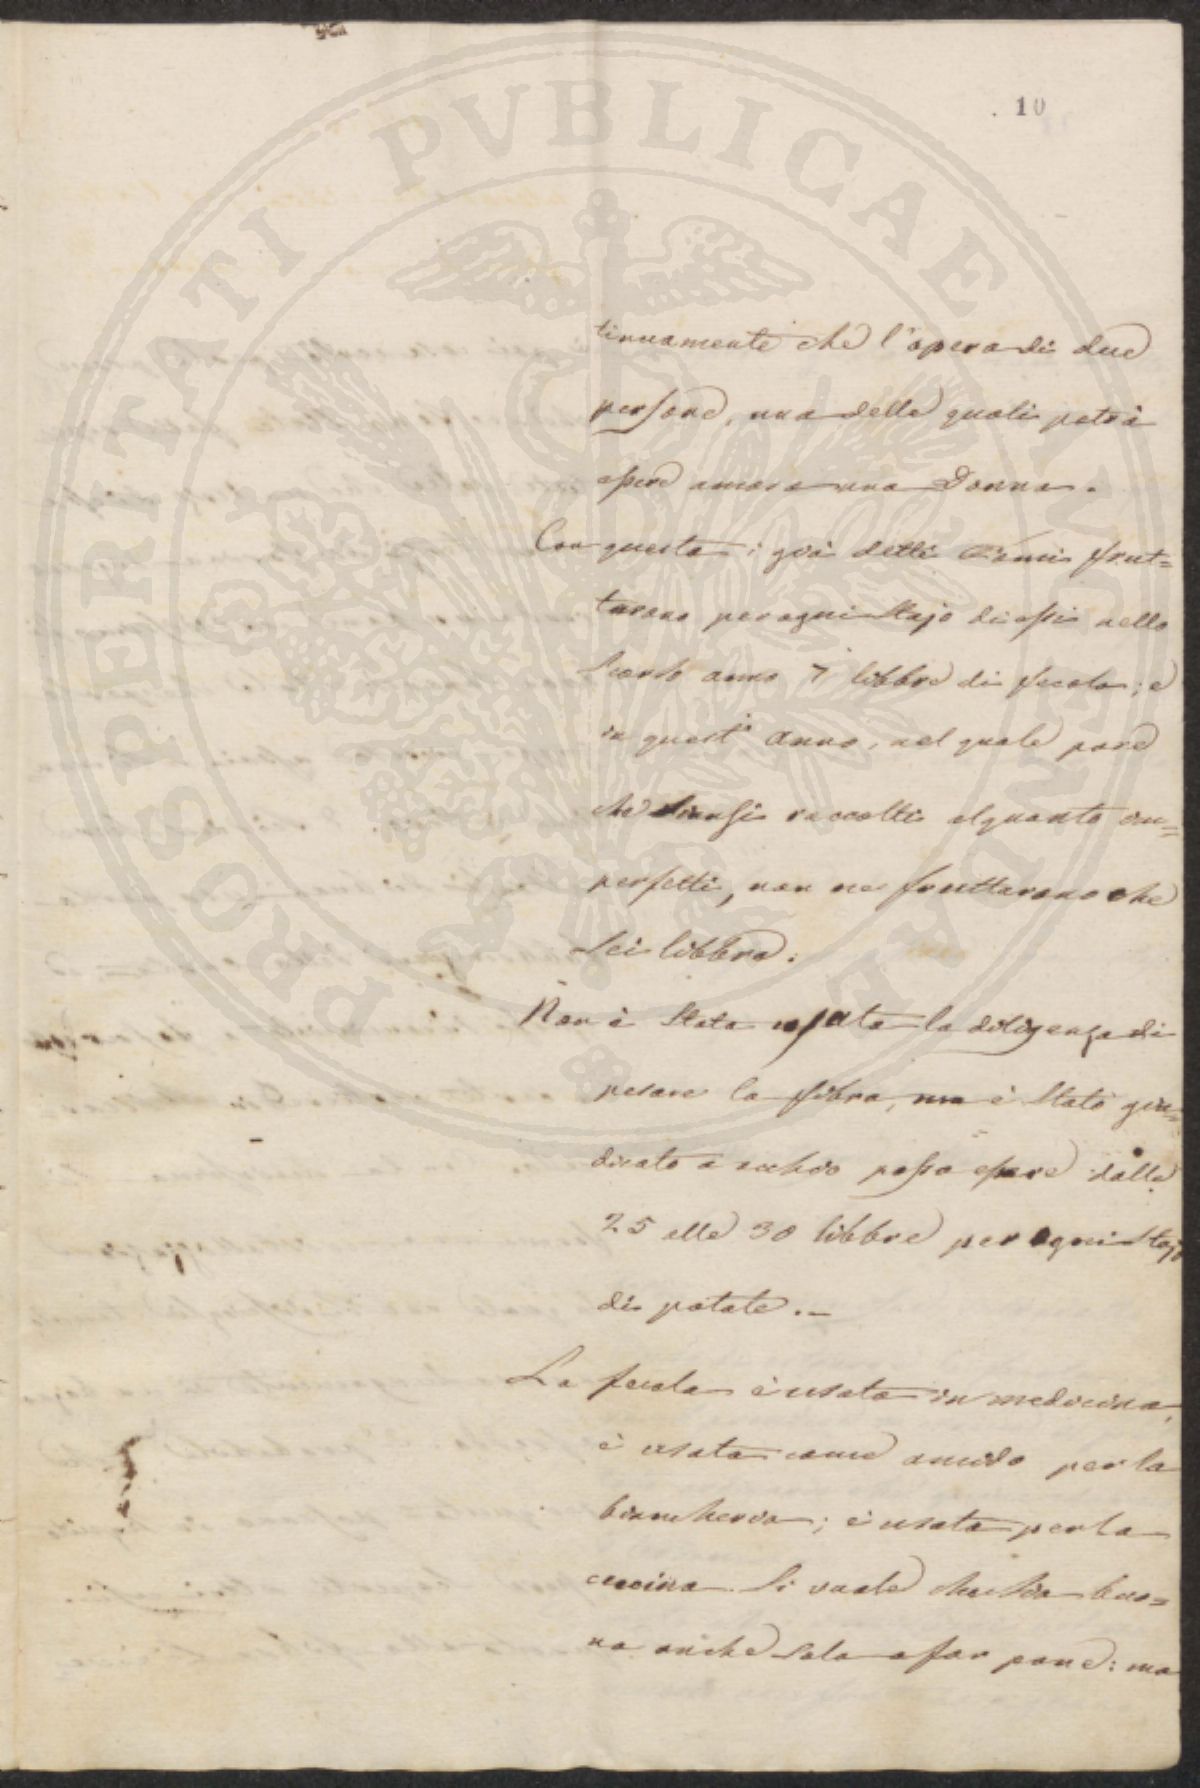 10
tinuamente che l'opera di due
persone, una delle quali potrà
essere ancora una Donna.
Con questa i già detti Pomi frut=
tarono per ogni Stajo di essi nello
Scorso anno 7 libbre di fecola; e
in quest' anno, nel quale pare
che siansi raccolti alquanto im=
perfetti, non ne fruttarono che
Sei libbre.
Non è Stata usata la diligenza di
pesare la fibra, ma è Stato giu=
dicato a occhio possa essere dalle
25 alle 30 libbre per ogni Stajo
di patate.
La fecola è usata in medicina,
è usata come amido per la
biancheria; è usata per la
cucina. Si vuole che sia buo=
na anche sola a far pane: ma
PROSPERITATI PVBLICAE AVGENDAE